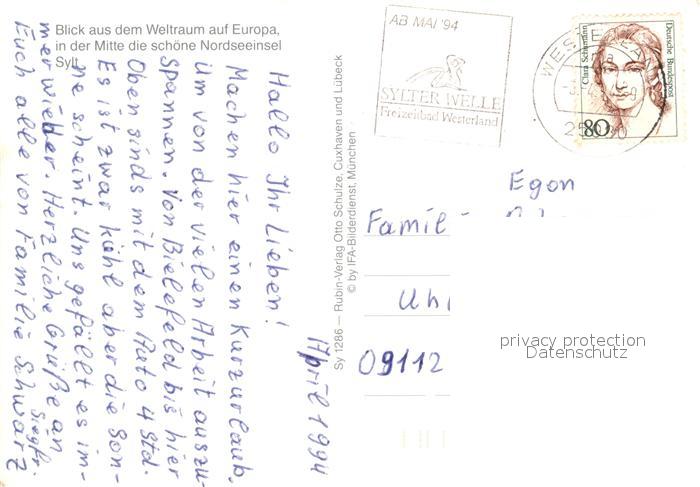 Blick aus dem Weltraum auf Europa,
in der Mitte die schöne Nordseeinsel
Sylt
April 1994
Hallo Ihr Lieben!
Machen hier einen Kurzurlaub,
um von der vielen Arbeit auszu-
spannen. Von Bielefeld bis hier
Oben sinds mit dem Auto 4 Std.
Es ist zwar kühl aber die Son-
ne scheint. Uns gefällt es im-
mer wieder. Herzliche Grüße an
Euch alle von Familie Schwarz
Siegfr.
Sy 1286 — Rubin-Verlag Otto Schulze, Cuxhaven und Lübeck
© by IFA-Bilderdienst, München
AB MAI '94
SYLTER WELLE
Freizeitbad Westerland
Clara Schumann
Deutsche Bundespost
80
Egon
Famil
Uhl
09112
privacy protection
Datenschutz